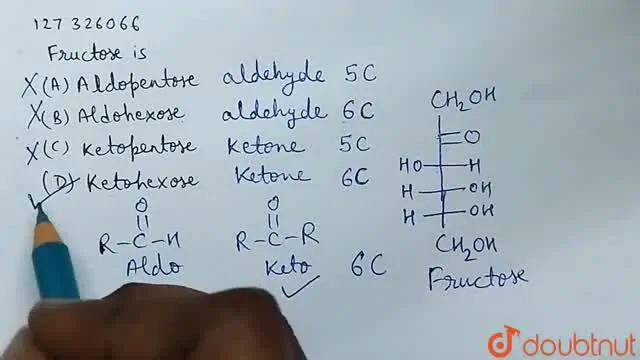 127 326066
Fructose is
X (A) Aldopentose aldehyde 5C
X (B) Aldohexose aldehyde 6C
X (C) Ketopentose Ketone 5C
(D) Ketohexose Ketone 6C
O
R-C-H
Aldo
O
R-C-R
Keto 6C
CH2OH
O
HO H
H OH
H OH
CH2OH
Fructose
doubtnut